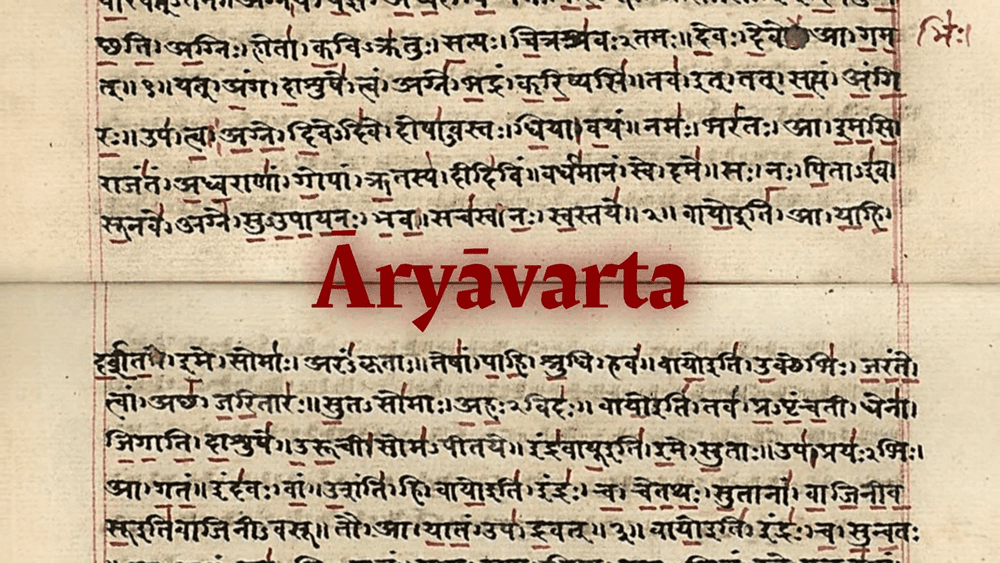 छति।अग्निः।होता।कविऽक्रतुः।सत्यः।चित्रश्रवःऽतमः॥देवः।देवे आ।गम भिः।
त्॥१॥यत्।अंग।दाशुषे।त्वं।अग्ने।भद्रं।करिष्यसि॥तव।इत्।तत्।सत्यं।अंगि
रः॥उप।त्वा।अग्ने।दिवेऽदिवे।दोषाऽवस्तः।धिया।वयं॥नमः।भरंतः।आ।इमसि।
राजंतं।अध्वराणां।गोपां।ऋतस्य।दीदिविं॥वर्धमानं।स्वे।दमे॥सः।नः।पिताऽइव।
सूनवे।अग्ने।सुऽउपायनः।भव॥सचस्व।नः।स्वस्तये॥२॥वायोइति।आ।याहि।
Āryāvarta
दर्शत।इमे।सोमाः।अरंऽकृताः॥तेषां।पाहि।श्रुधि।हवं॥वायोइति।उक्थेभिः।जरंते।
त्वां।अच्छ।जरितारः॥सुतऽसोमाः।अहःऽविदः॥वायोइति।तव।प्रऽपृंचती।धेना।
जिगाति।दाशुषे॥उरूची।सोमऽपीतये॥इंद्रवायूइति।इमे।सुताः॥उप।प्रयःऽभिः।
आ।गतं॥इंदवः।वां।उशंति।हि।वायोइति।इंद्रः।च।चेतथः।सुतानां।वाजिनीव
सूइतिवाजिनीऽवसू॥तौ।आ।यातं।उप।द्रवत्॥३॥वायोइति।इंद्रः।च।सुन्वतः।